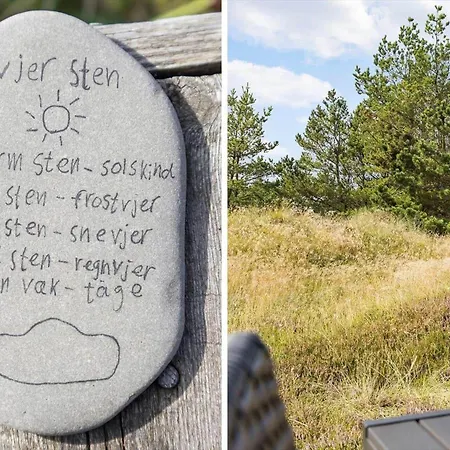 vjer sten
rm sten - solskind
sten - frostvjer
sten - snevjer
sten - regnvjer
n væk - tåge